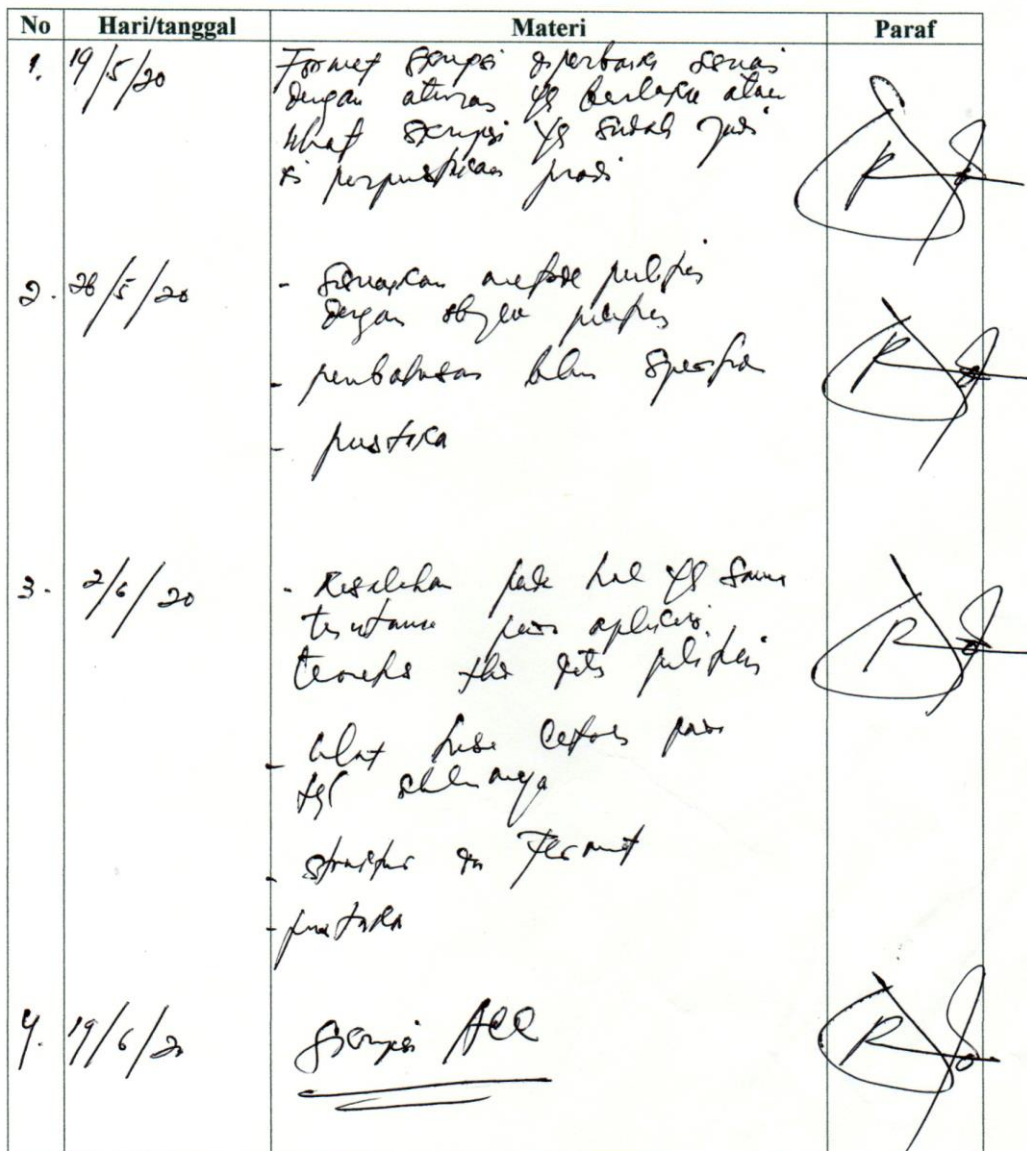 No Hari/tanggal Materi Paraf
1. 19/5/20 Format skripsi diperbaiki sesuai
dengan aturan yg berlaku atau
lihat skripsi yg sudah jadi
di perpustakaan prodi
2. 26/5/20 - Sesuaikan metode penelitian
dengan obyek penelitian
- pembahasan blm spesifik
- pustaka
3. 2/6/20 - Kesalahan pada hal yg sama
terutama pada aplikasi
- lihat pada
tgl sebelumnya
- struktur dn Format
- pustaka
4. 19/6/20 Skripsi ACC